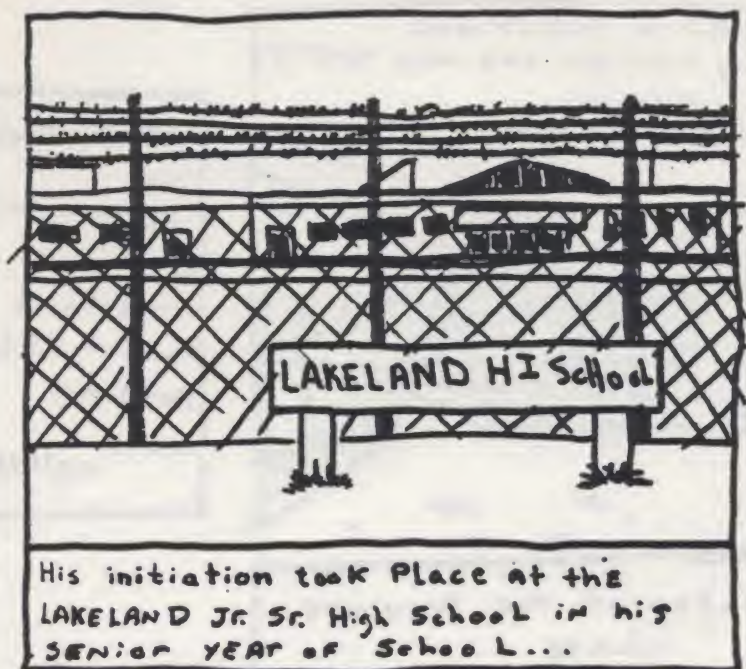 LAKELAND HI ScHooL
His initiation took Place at thE
LAKELAND Jr. Sr. High SchooL in his
SENior YEAr oF SchooL...